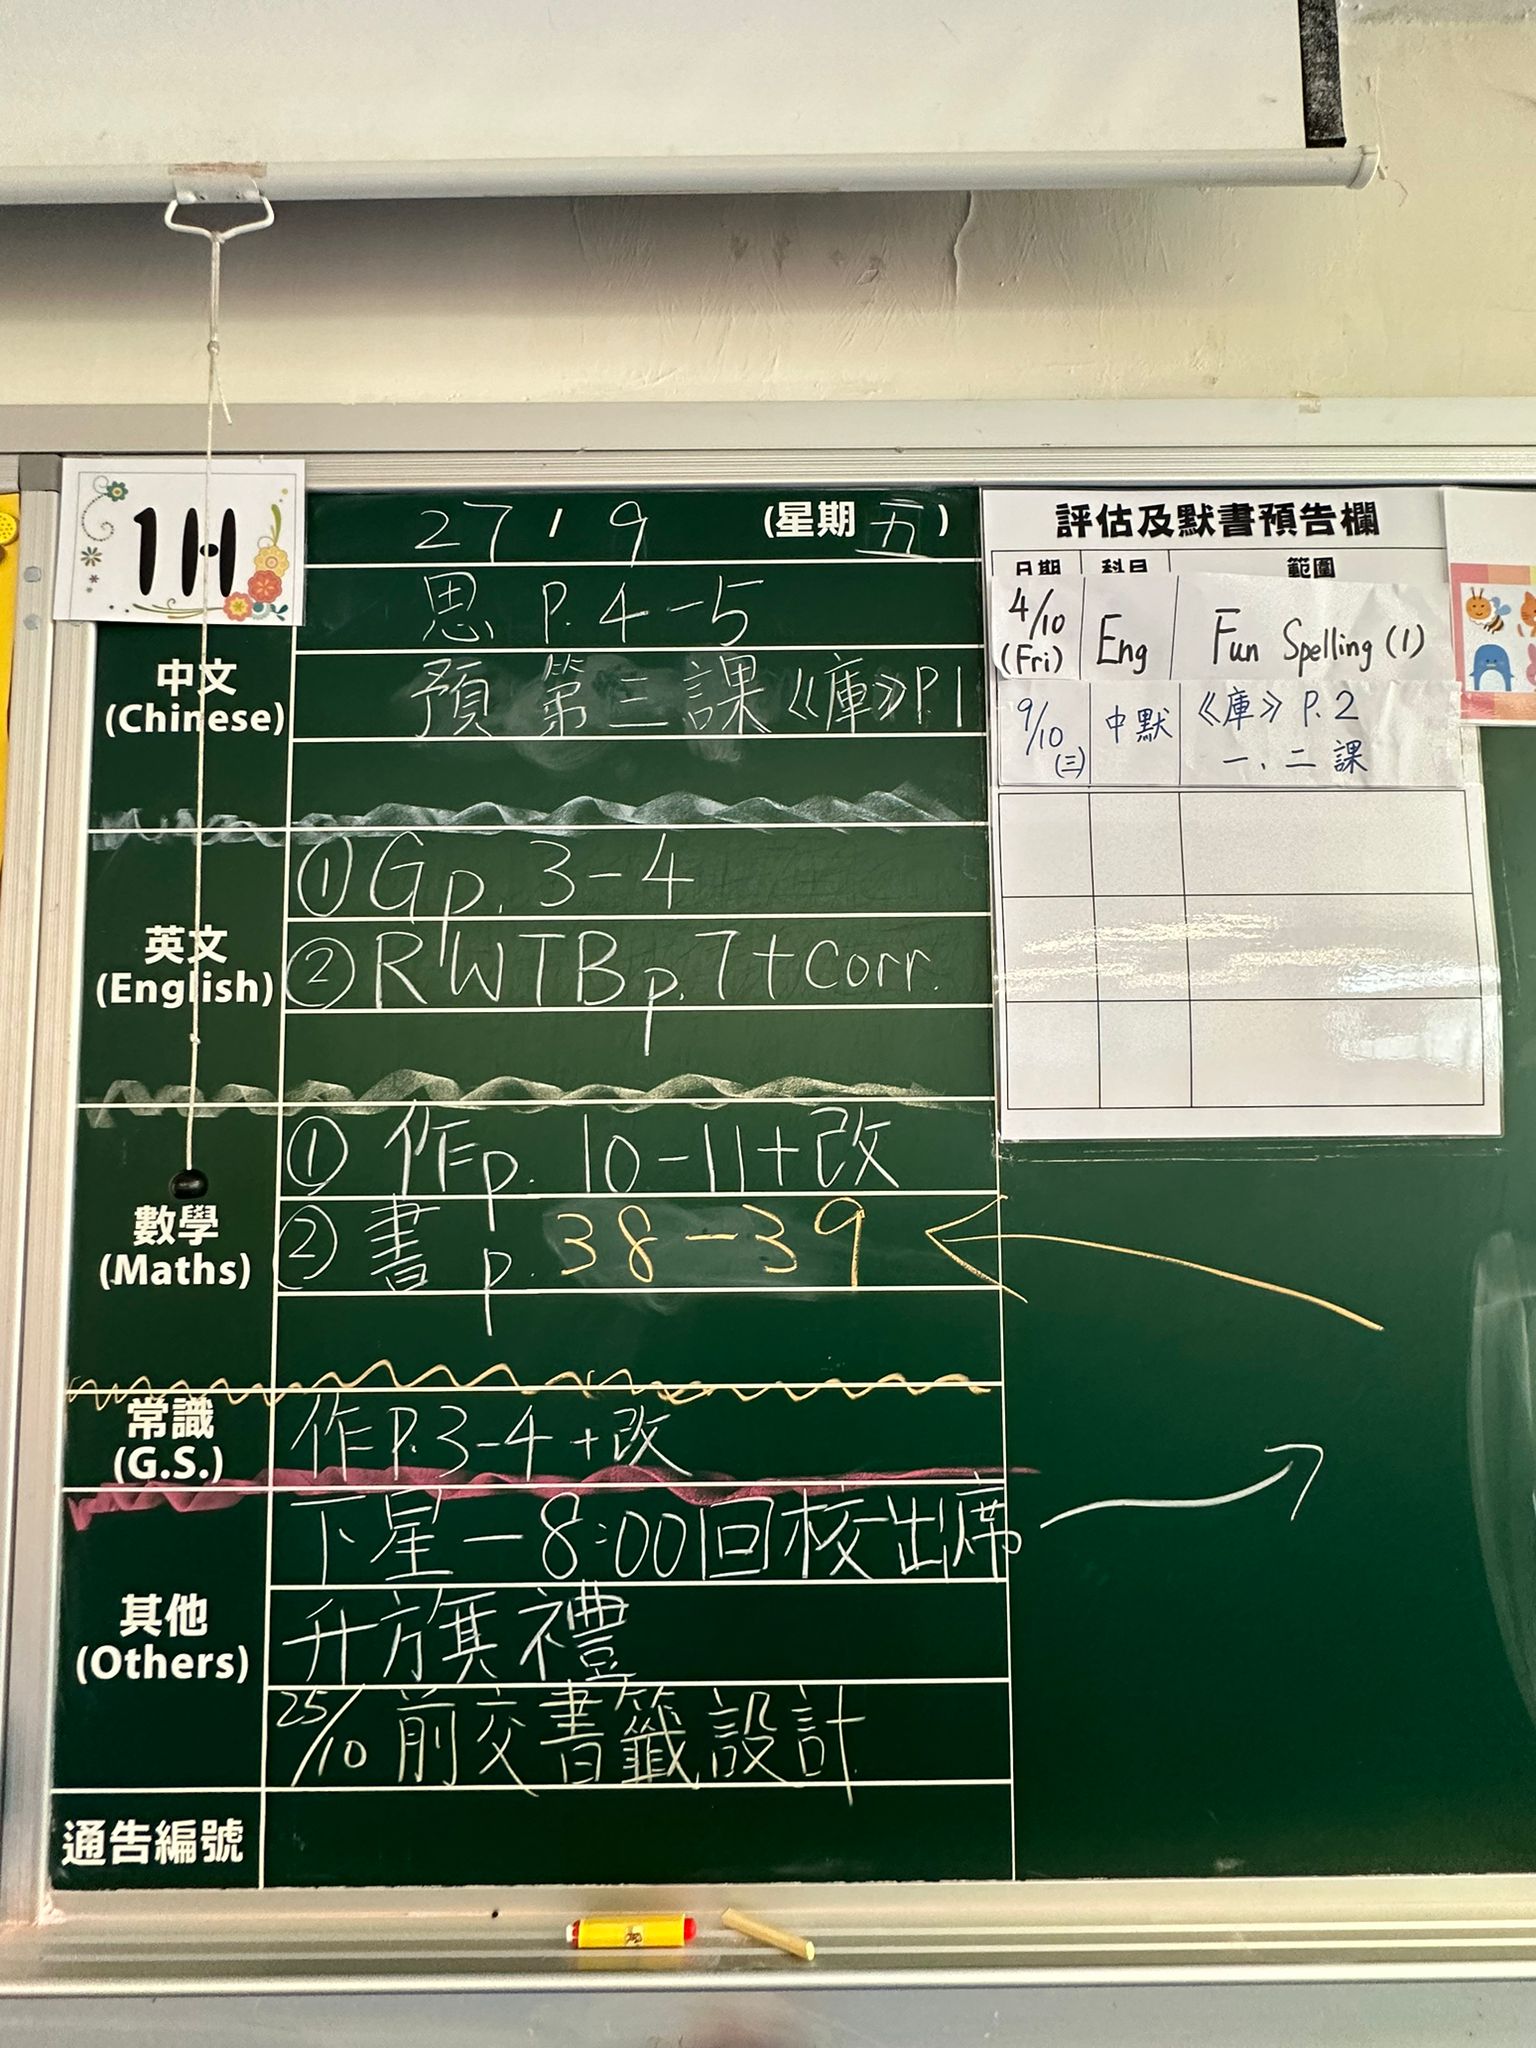 1H
27 / 9 (星期 五 )
中文
(Chinese)
思 P. 4-5
預 第三課《庫》P.1
英文
(English)
① G p. 3-4
② RWTB p. 7 + corr.
數學
(Maths)
① 作 p. 10-11+改
② 書 p. 38-39
常識
(G.S.)
作 P.3-4 +改
其他
(Others)
下星一 8:00 回校出席
升旗禮
25/10 前交書籤設計
通告編號
評估及默書預告欄
日期 科目 範圍
4/10 (Fri) Eng Fun Spelling (1)
9/10 (三) 中默 《庫》 P.2
一、二課